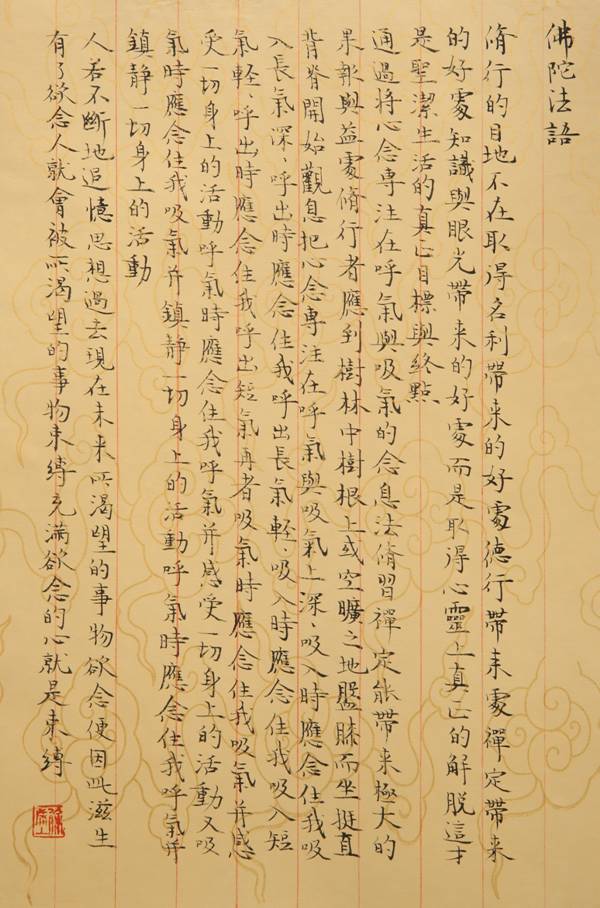 佛陀法語
脩行的目地不在取得名利帶来的好處德行帶来處禪定帶来
的好處知識與眼光帶来的好處而是取得心靈上真正的解脫這才
是聖潔生活的真正目標與終點
通過將心念專注在呼氣與吸氣的念息法脩習禪定能帶来極大的
果報與益處脩行者應到樹林中樹根上或空曠之地盤膝而坐挺直
背脊開始觀息把心念專注在呼氣與吸氣上深、吸入時應念住我吸
入長氣深、呼出時應念住我呼出長氣輕、吸入時應念住我吸入短
氣輕、呼出時應念住我呼出短氣再者吸氣時應念住我吸氣并感
受一切身上的活動呼氣時應念住我呼氣并感受一切身上的活動又吸
氣時應念住我吸氣并鎮静一切身上的活動呼氣時應念住我呼氣并
鎮静一切身上的活動
人若不斷地追憶思想過去現在未来所渴望的事物欲念便因此滋生
有了欲念人就會被所渴望的事物束縛充滿欲念的心就是束縛